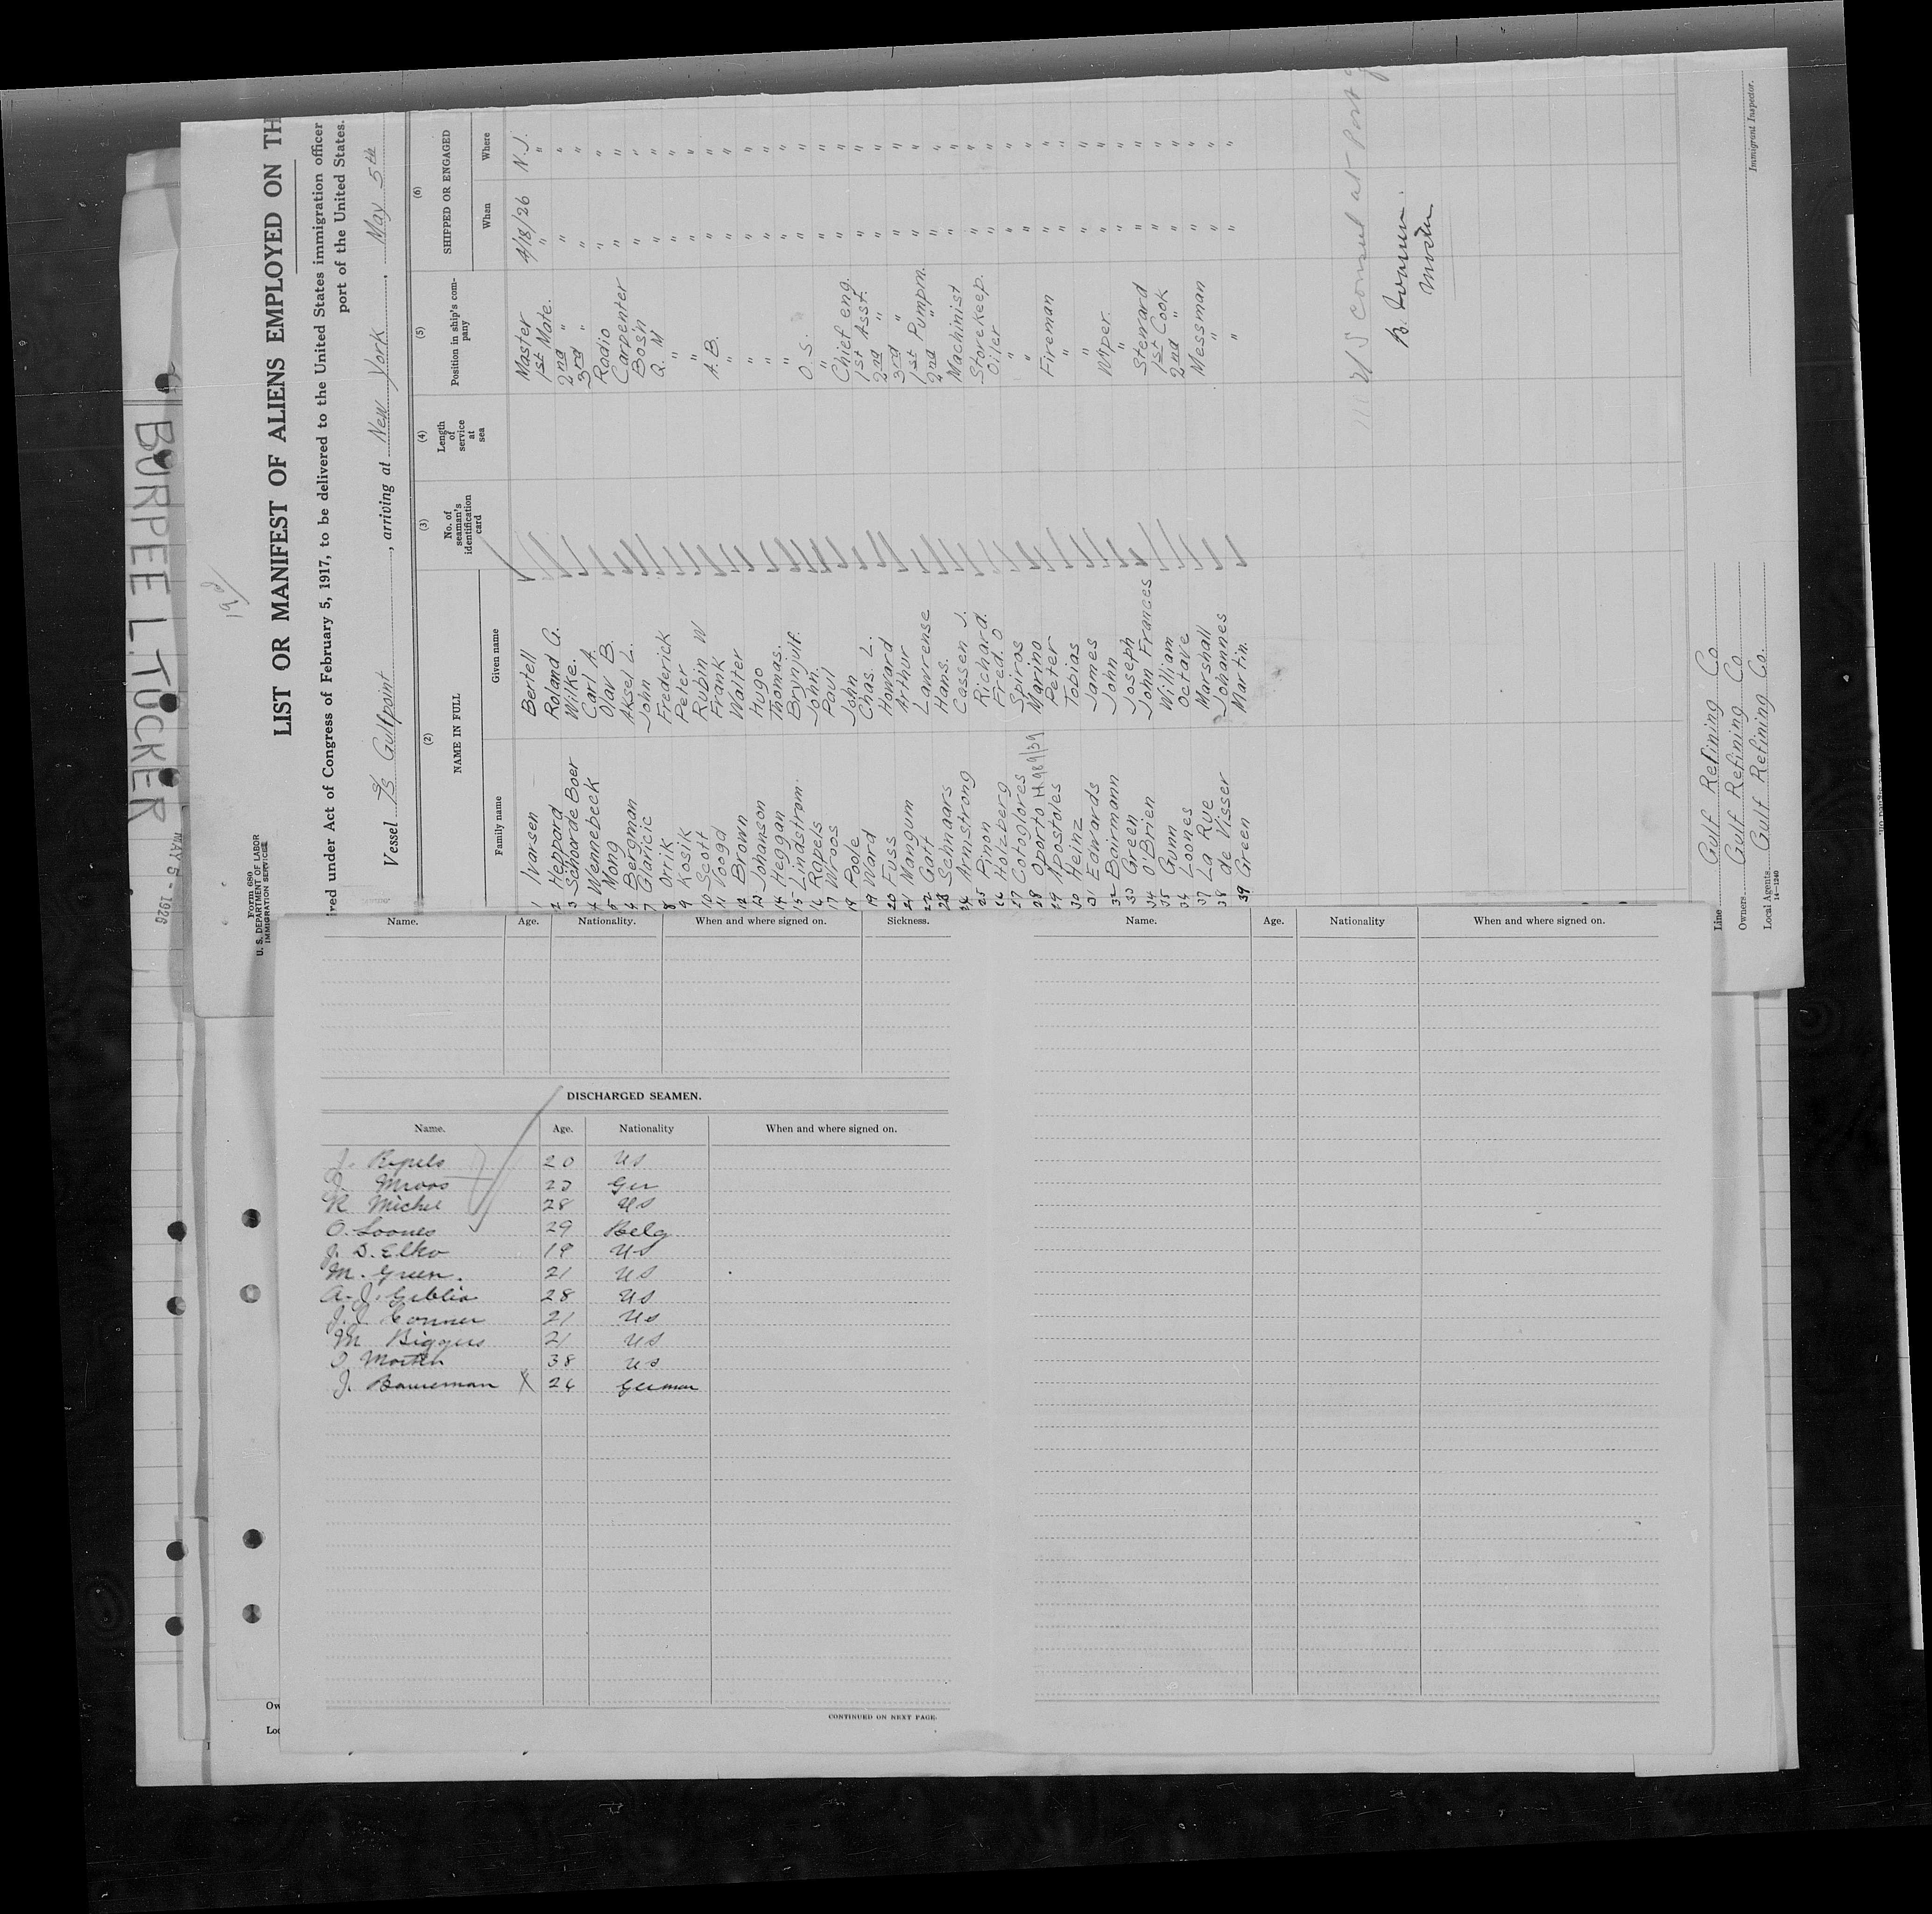 BURPEE L. TUCKER
MAY 5 - 1926
Form 680
U. S. DEPARTMENT OF LABOR
IMMIGRATION SERVICE
LIST OR MANIFEST OF ALIENS EMPLOYED ON TH
ired under Act of Congress of February 5, 1917, to be delivered to the United States immigration officer
port of the United States.
Vessel S/S Gulfpoint, arriving at New York, May 5th
(2) (3) (4) (5) (6)
NAME IN FULL No. of seaman's identification card Length of service at sea Position in ship's company SHIPPED OR ENGAGED
Family name Given name When Where
1 Ivarsen Bertell Master 4/18/26 N.J.
2 Heppard Roland G. 1st Mate. " "
3 Schoorde Boer Wilke. 2nd " " "
4 Wennebeck Carl A. 3rd " " "
5 Mong Olav B. Radio " "
6 Bergman Aksel L. Carpenter " "
7 Glaricic John Bosin " "
8 Orrik Frederick Q. M " "
9 Kosik Peter " " "
10 Scott Rubin W " " "
11 Voogd Frank A. B. " "
12 Brown Walter " " "
13 Johanson Hugo " "
14 Heggan Thomas. " " "
15 Lindstram. Brynjulf. " " "
16 Rapels John. O. S. " "
17 Wroos Paul " " "
18 Poole John Chief eng. " "
19 Ward Chas. L. 1st Asst. " "
20 Fuss Howard 2nd " " "
21 Mangum Arthur 3rd " " "
22 Gatt Lawrense 1st Pumpm. " "
23 Schnaars Hans. 2nd " " "
24 Armstrong Cassen J. Machinist " "
25 Pinon Richard. Storekeep. " "
26 Holzberg Fred. O Oiler " "
27 Cotoglores Spiros " " "
28 Oporto Marino " " "
29 Apostoles Peter Fireman " "
30 Heinz Tobias " " "
31 Edwards James " " "
32 Bairmann John Wiper. " "
33 Green Joseph " " "
34 O'Brien John Frances Steward " "
35 Gunn William 1st Cook " "
36 Loones Octave 2nd " " "
37 La Rue Marshall Messman " "
38 de Visser Johannes " " "
39 Green Martin. " " "
U S consul at Port
Line Gulf Refining Co
Owners Gulf Refining Co
Local Agents Gulf Refining Co.
14-1240
Immigrant Inspector.
Name. Age. Nationality. When and where signed on. Sickness.
DISCHARGED SEAMEN.
Name. Age. Nationality When and where signed on.
J. Rapels 20 US
Mroos Ger
R Michel 28 US
O. Loones 29 Belg
J. D. Elko 19 US
M. Green. 21 US
A. J. Giblin 28 US
J. C Conner 21 US
M Biggers 21 US
38 US
J. Baureman X 26 German
CONTINUED ON NEXT PAGE.
Name. Age. Nationality When and where signed on.